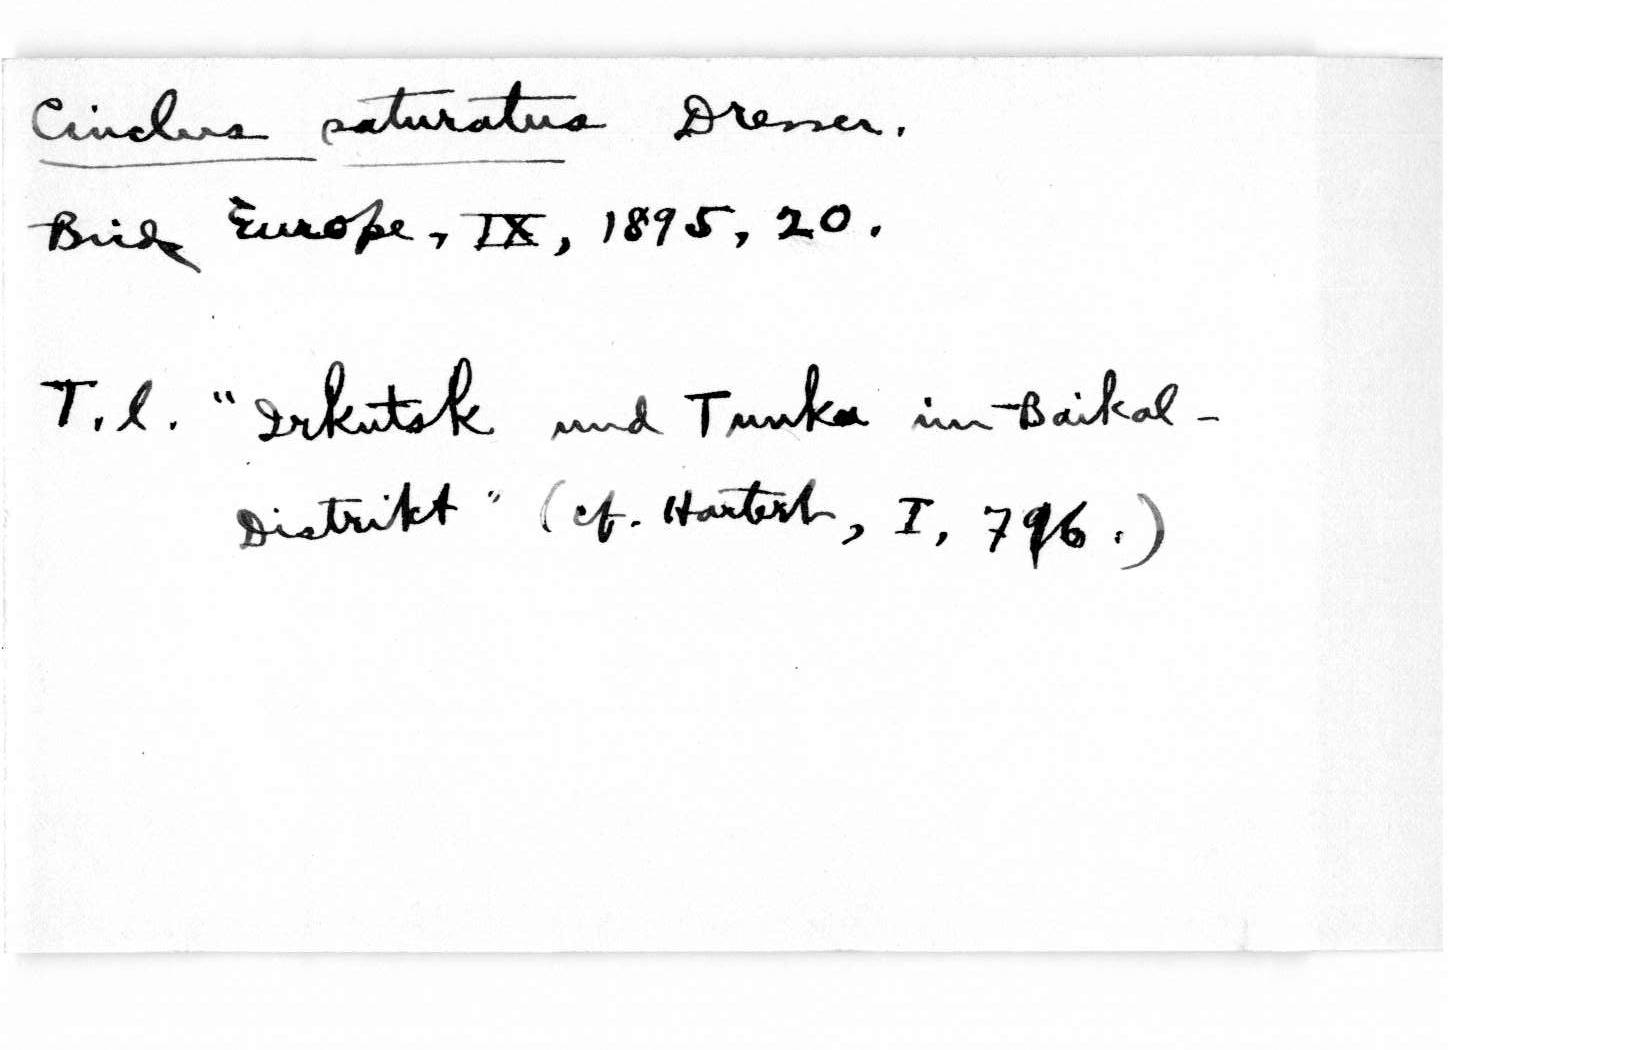 Cinclus saturatus Dresser.
Birds Europe, IX, 1895, 20.
T. l. "Irkutsk und Tunka im Baikal-
Distrikt" (cf. Hartert, I, 796.)